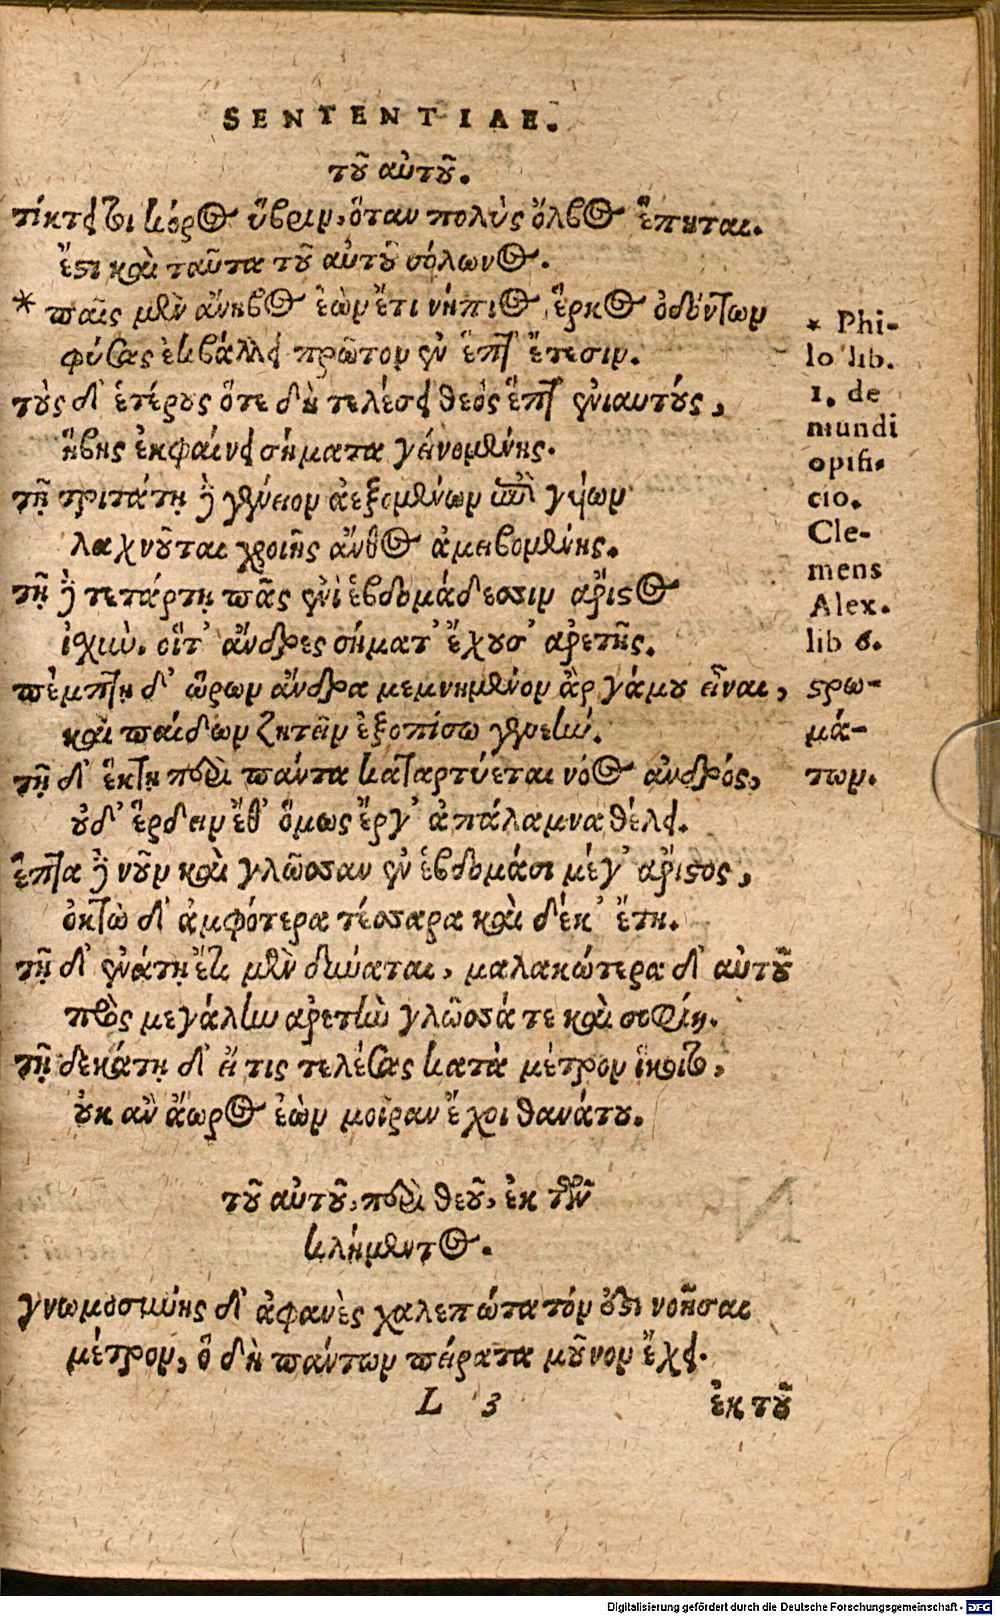 SENTENTIAE.
τοῦ αὐτοῦ.
τίκτει τοι κόρος ὕβριν, ὅταν πολὺς ὄλβος ἕπηται.
ἔστι καὶ ταῦτα τοῦ αὐτοῦ σόλωνος.
* παῖς μὲν ἄνηβος ἐὼν ἔτι νήπιος ἕρκος ὀδόντων
φύσας ἐκβάλλει πρῶτον ἐν ἑπτ' ἔτεσιν.
τοὺς δ' ἑτέρους ὅτε δὴ τελέσει θεὸς ἕπτ' ἐνιαυτούς,
ἥβης ἐκφαίνει σήματα γεινομένης.
τῇ τριτάτῃ δὲ γένειον ἀεξομένων ἐπὶ γυίων
λαχνοῦται χροιῆς ἄνθος ἀμειβομένης.
τῇ δὲ τετάρτῃ πᾶς ἐνὶ ἑβδομάδεσσιν ἄριστος
ἰσχύν. οἵτ' ἄνδρες σήματ' ἔχουσ' ἀρετῆς.
πέμπτῃ δ' ὥρων ἄνδρα μεμνημένον ἂρ γάμου εἶναι,
καὶ παίδων ζητεῖν ἐξοπίσω γενεήν.
τῇ δ' ἕκτῃ περὶ πάντα καταρτύεται νόος ἀνδρός,
οὐδ' ἔρδειν ἔθ' ὅμως ἔργ' ἀπάλαμνα θέλει.
ἑπτὰ δὲ νοῦν καὶ γλῶσσαν ἐν ἑβδομάσι μέγ' ἄριστος,
ὀκτὼ δ' ἀμφότερα τέσσαρα καὶ δέκ' ἔτη.
τῇ δ' ἐνάτῃ ἔτι μὲν δύναται, μαλακώτερα δ' αὐτοῦ
πρὸς μεγάλην ἀρετὴν γλῶσσά τε καὶ σοφίη.
τῇ δεκάτῃ δ' εἴ τις τελέσας κατὰ μέτρον ἵκοιτο,
οὐκ ἂν ἄωρος ἐὼν μοῖραν ἔχοι θανάτου.
τοῦ αὐτοῦ, περὶ θεοῦ, ἐκ τῶν
κλήμεντος.
γνωμοσύνης δ' ἀφανὲς χαλεπώτατόν ἐστι νοῆσαι
μέτρον, ὃ δὴ πάντων πείρατα μοῦνον ἔχει.
L 3
ἐκ τοῦ
* Phi-
lo lib.
1. de
mundi
opifi-
cio.
Cle-
mens
Alex.
lib 6.
στρω-
μά-
των.
Digitalisierung gefördert durch die Deutsche Forschungsgemeinschaft - DFG